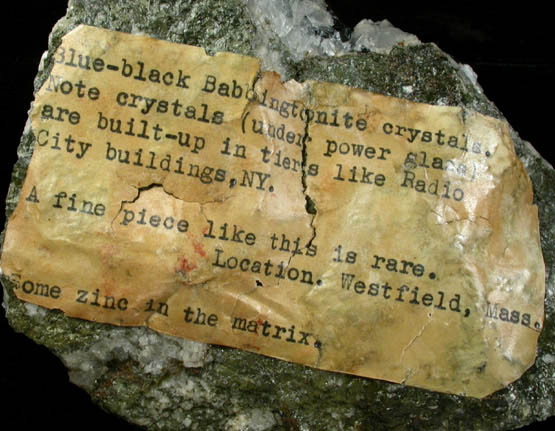 Blue-black Babbingtonite crystals.
Note crystals (under power glass)
are built-up in tiers like Radio
City buildings,NY.
A fine piece like this is rare.
Location. Westfield, Mass.
Some zinc in the matrix.